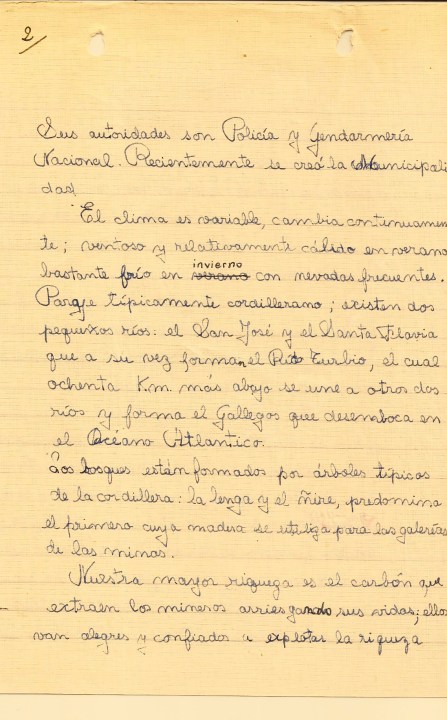 2/
Sus autoridades son Policía y Gendarmería
Nacional. Recientemente se creó la Municipali
dad.
El clima es variable, cambia continuamen
te; ventoso y relativamente cálido en verano
invierno
bastante frío en verano con nevadas frecuentes.
típicamente cordillerano; existen dos
pequeños ríos: el San José y el Santa Flavia
que a su vez forman el Río Turbio, el cual
ochenta K.m. más abajo se une a otros dos
ríos y forma el Gallegos que desemboca en
el Océano Atlántico.
Los bosques están formados por árboles típicos
de la cordillera: la lenga y el ñire, predomina
el primero cuya madera se utiliza para las galerías
de las minas.
Nuestra mayor riqueza es el carbón que
extraen los mineros arriesgando sus vidas; ellos
van alegres y confiados a explotar la riqueza